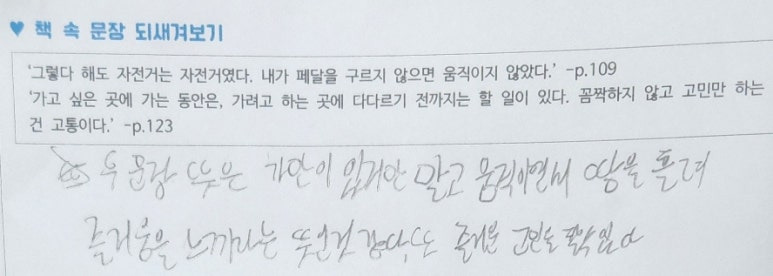 ♥ 책 속 문장 되새겨보기
'그렇다 해도 자전거는 자전거였다. 내가 페달을 구르지 않으면 움직이지 않았다.' -p.109
'가고 싶은 곳에 가는 동안은, 가려고 하는 곳에 다다르기 전까지는 할 일이 있다. 꼼짝하지 않고 고민만 하는
건 고통이다.' -p.123
두 문장 모두은 가만이 있지만 말고 움직이면서 땀을 흘려
즐거움을 느끼라는 뜻인것 같다, 또 즐거운